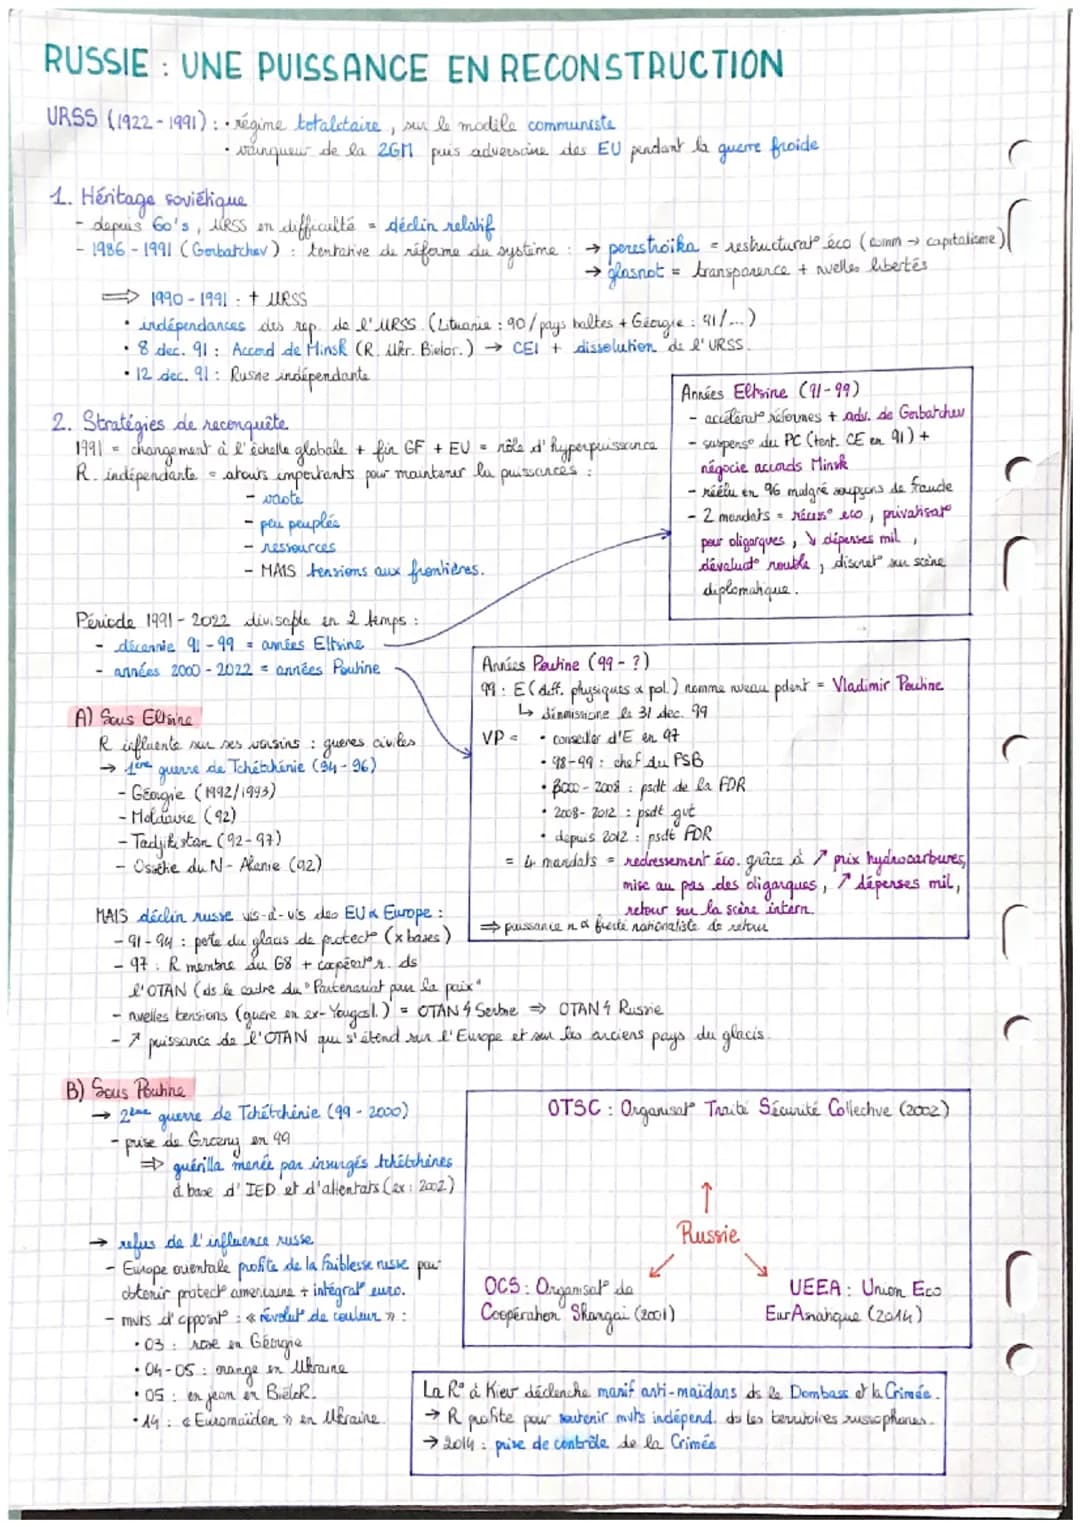 RUSSIE : UNE PUISSANCE EN RECONSTRUCTION
URSS (1922-1991) : • régime totalitaire, sur le modèle communiste
• vainqueur de la 2GM puis adversaire des EU pendant la guerre froide
1. Héritage soviétique
- depuis 60's, URSS en difficulté = déclin relatif
- 1986-1991 (Gorbatchev) : tentative de réforme du système : → perestroika = restructurat° éco (comm → capitalisme)
→ glasnot = transparence + nvelles libertés
⇒ 1990-1991 : † URSS
• indépendances des rep. de l'URSS (Lituanie : 90/pays baltes + Géorgie : 91/...)
• 8 dec. 91 : Accord de Minsk (R. Ukr. Bielor.) → CEI + dissolution de l'URSS.
• 12 dec. 91 : Russie indépendante
2. Stratégies de reconquête
1991 = changement à l'échelle globale + fin GF + EU = rôle d'hyperpuissance
R. indépendante = atouts importants pour maintenir la puissances :
- vaste
- peu peuplée
- ressources
- MAIS tensions aux frontières.
Années Eltsine (91-99)
- accélérat° réformes + adv. de Gorbatchev
- suspens° du PC (tent. CE en 91) +
négocie accords Minsk
- réélu en 96 malgré soupçons de fraude
- 2 mandats = récess° eco, privatisat°
pour oligarques, ↘ dépenses mil,
dévaluat° rouble, discret sur scène
diplomatique.
Période 1991-2022 divisable en 2 temps :
- décennie 91-99 = années Eltsine
- années 2000-2022 = années Poutine
Années Poutine (99-?)
99 : E (diff. physiques & pol.) nomme nveau pdent = Vladimir Poutine
↳ dinmissione le 31 dec. 99
VP = • conseiller d'E en 97
• 98-99 : chef du FSB
• 2000-2008 : psdt de la FDR
• 2008-2012 : psdt gvt
• depuis 2012 : psdt FDR
= 4 mandats = redressement éco. grâce à ↗ prix hydrocarbures,
mise au pas des oligarques, ↗ dépenses mil,
retour sur la scène intern.
⇒ puissance n & fierté nationaliste de retour
A) Sous Eltsine
R influente sur ses voisins : gueres civiles
→ 1ère guerre de Tchétchénie (94-96)
- Géorgie (1992/1993)
- Moldavie (92)
- Tadjikistan (92-97)
- Ossétie du N - Alanie (92)
MAIS déclin russe vis-à-vis des EU & Europe :
- 91-94 : perte du glacis de protect° (x bases)
- 97 : R membre du G8 + coopérat° r. ds
l'OTAN (ds le cadre du "Partenariat pour la paix"
- nvelles tensions (guere en ex-Yougosl.) = OTAN ↯ Serbie ⇒ OTAN ↯ Russie
- ↗ puissance de l'OTAN qui s'étend sur l'Europe et sur les anciens pays du glacis.
B) Sous Poutine
→ 2ème guerre de Tchétchénie (99-2000)
- prise de Grozny en 99
⇒ guérilla menée par insurgés tchétchènes
à base d'IED et d'attentats (ex : 2002)
→ refus de l'influence russe
- Europe orientale profite de la faiblesse russe pour
obtenir protect° americaine + intégrat° euro.
- mvts d'opposit° : « révolut° de couleur » :
• 03 : rose en Géorgie
• 04-05 : orange en Ukraine
• 05 : en jean en BiéloR.
• 14 : « Euromaïden » en Ukraine.
OTSC : Organisat° Traité Sécurité Collective (2002)
Russie
OCS : Organisat° de
Coopération Shangai (2001)
UEEA : Union Eco
EurAsiatique (2014)
La R° à Kiev déclenche manif anti-maïdans ds le Dombass et la Crimée.
→ R profite pour soutenir mvts indépend. ds les territoires russophones.
→ 2014 : prise de contrôle de la Crimée